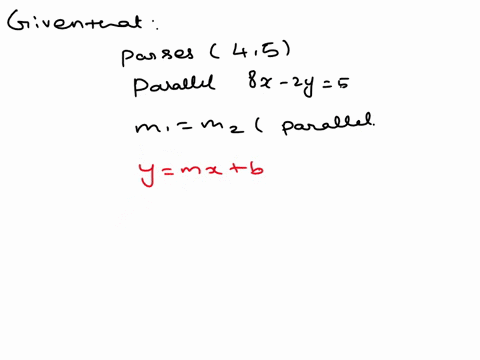 Giventhat:
Parses (4,5)
Parallel 8x-2y=5
m₁=m₂( parallel.
y=mx+b